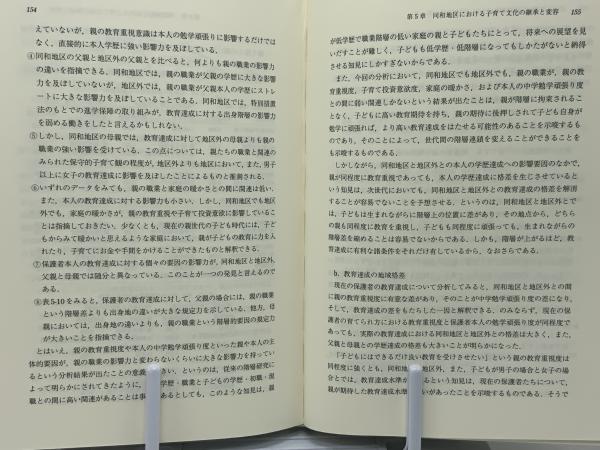 154
えていないが、親の教育重視意識は本人の勉学頑張りに影響するだけでは
なく、直接的に本人学歴に強い影響力を及ぼしている。
④同和地区の父親と地区外の父親とを比べると、何よりも親の職業の影響力
の違いを指摘できる。同和地区では、親の職業が父親の学歴に大きな影響
力を及ぼしていないが、地区外では、親の職業が父親本人の学歴にストレ
ートに大きな影響力を及ぼしていることである。同和地区では、特別措置
法のもとでの進学保障の取り組みが、教育達成に対する出身階層の影響力
を弱める働きをしたと言えるかもしれない。
⑤しかし、同和地区の母親では、教育達成に対して地区外の母親よりも親の
職業の強い影響を受けている。この点については、親たちの職業と関連の
みられた保守的子育て観の程度が、地区外よりも地区において、また、男子
以上に女子の教育達成に影響を及ぼしたことによるものと推測される。
⑥いずれのデータをみても、親の職業と家庭の暖かさとの間に関連は低い。
また、本人の教育達成に対する影響力も小さい。しかし、同和地区でも地区
外でも、家庭の暖かさが、親の教育重視や子育て投資意欲に影響しているこ
とは指摘しておきたい。少なくとも、現在の親世代の子ども時代には、子ど
もからみて暖かいと思えるような家庭において、親が子どもの教育に力を入
れたり、子育てにお金や手間をかけることができたものと解釈できる。
⑦保護者本人の教育達成に対する個々の要因の影響力が、同和地区と地区外、
父親と母親では随分と異なっている。このことが一つの発見と言えるので
ある。
⑧表5-10をみると、保護者の教育達成に対して、父親の場合には、親の職業
という階層差よりも出身地の違いが大きな規定力を示している。他方、母
親においては、出身地の違いよりも、親の職業という階層的要因の規定力
が大きいことを指摘できる。
とはいえ、親の教育重視度や本人の中学勉学頑張り度といった親や本人の主
体的要因が、親の職業の影響力と変わらないくらいに大きな影響力を持ってい
るという分析結果が出たことの意義
きい。というのは、従来の階層研究に
よって明らかにされてきたように、
学歴・職業と子どもの学歴・初職・現
職との間に高い関連があることは事
あるとしても、このような知見は、親
第5章　同和地区における子育て文化の継承と変容　155
が低学歴で職業階層の低い家庭の親と子どもたちにとって、将来への展望を見
いだすことが難しく、子どもも低学歴・低階層になってもしかたがないと納得
させる知見にしかすぎないからである。
また、今回の分析において、同和地区でも地区外でも、親の職業が、親の教
育重視度、子育て投資意欲度、家庭の暖かさ、および本人の中学勉学頑張り度
との間に弱い関連しかないという結果が出たことは、親が階層に拘束されるこ
となく、子どもに高い教育期待を持ち、親の期待に後押しされて子ども自身が
勉学に頑張れば、より高い教育達成をはたせる可能性のあることを示唆するも
のであり、そのことによって、世代間の階層連鎖を変えることができることを
も示唆するものである。
しかしながら、同和地区と地区外との本人の学歴達成への影響要因のなかで、
親が同程度に教育重視であっても、本人の学歴達成に格差を生じさせていると
いう知見は、次世代においても、同和地区と地区外との教育達成の格差を解消
することが容易でないことを予想させる。というのは、同和地区と地区外とで
は、子どもは生まれながらに階層上の位置に差があり、その地点から、どちら
の親も同程度に教育を重視し、子どもも同程度に頑張っても、生まれながらの
階層差を縮めることは容易でないからである。しかも、階層が上がるほど、教
育達成に有利な諸条件をそれだけ有しているから、なおさらである。
b. 教育達成の地域格差
現在の保護者の教育達成について分析してみると、同和地区と地区外との間
に親の教育重視度に有意な差があり、そのことが中学勉学頑張り度の差になり、
そして、教育達成の差をもたらした一因と解釈できる。のみならず、現在の保
護者の育てられ方における教育重視度と保護者本人の勉学頑張り度が同程度で
あっても、実際の教育達成における同和地区と地区外との格差は大きく、また、
父親と母親との学歴達成の格差も大きいことが明らかになった。
「子どもにはできるだけ良い教育を受けさせたい」という親の教育重視度は
同程度に強くとも、同和地
地区外、また、子どもが男子の場合と女子の場
合とでは、教育達成水準が
るという知見は、現在の保護者たちについて、
親が期待した教育達成水準
いがあったことを示唆するものである。そうで